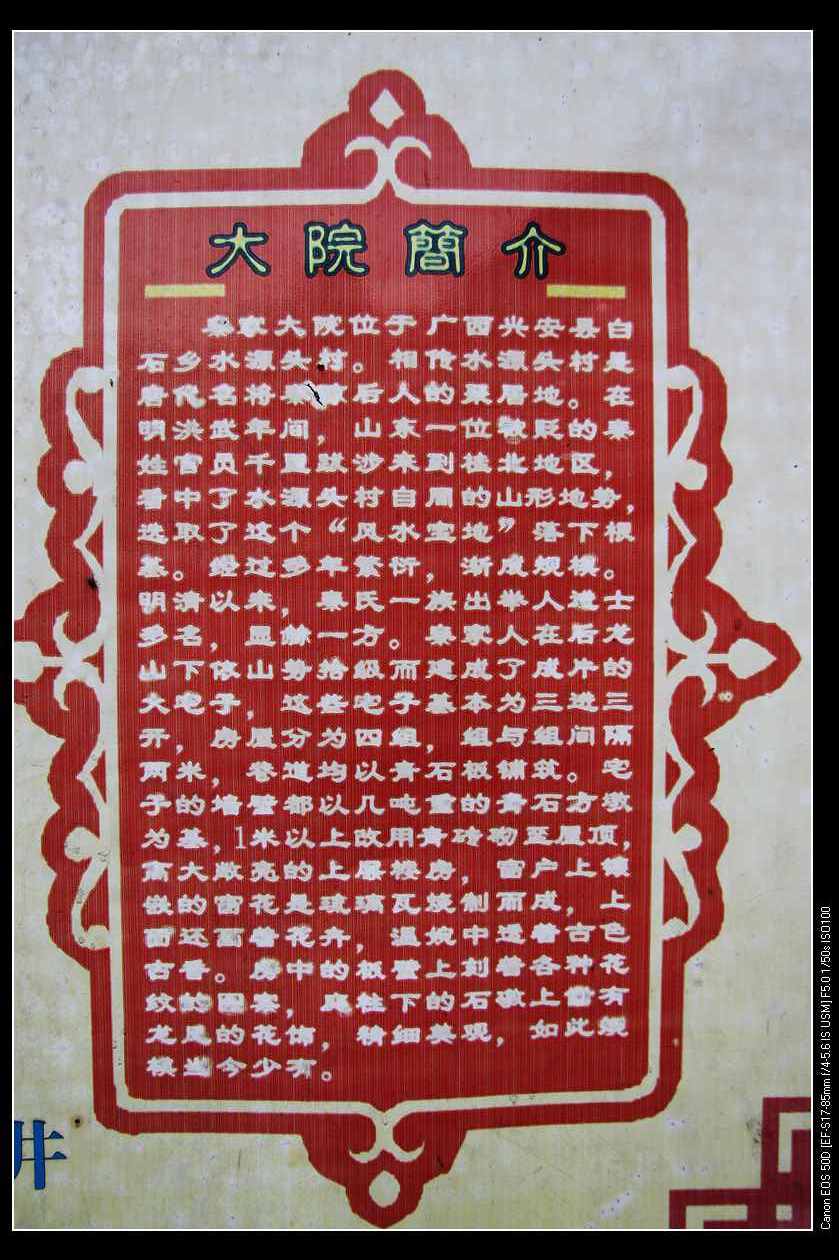 大院簡介
秦家大院位于广西兴安县白
石乡水源头村。相传水源头村是
唐代名将秦琼后人的聚居地。在
明洪武年间，山东一位被贬的秦
姓官员千里跋涉来到桂北地区，
看中了水源头村自周的山形地势，
选取了这个“风水宝地”落下根
基。经过多年繁衍，渐成规模。
明清以来，秦氏一族出举人进士
多名，显赫一方。秦家人在后龙
山下依山势拾级而建成了成片的
大宅子，这些宅子基本为三进三
开，房屋分为四组，组与组间隔
两米，巷道均以青石板铺筑。宅
子的墙壁都以几吨重的青石方墩
为基，1米以上改用青砖砌至屋顶，
高大敞亮的上层楼房，窗户上镶
嵌的窗花是琉璃瓦烧制而成，上
面还画着花卉，温婉中透着古色
古香。房中的板壁上刻着各种花
纹的图案，房柱下的石墩上雕有
龙凤的花饰，精细美观，如此规
模当今少有。
井
Canon EOS 50D [EF-S17-85mm f/4-5.6 IS USM] F5.0 1/50s ISO100